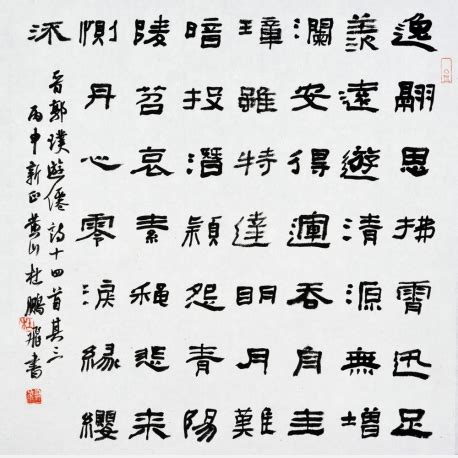 逸翮思拂霄迅足
羨遠遊清源無增
瀾安得運吞舟圭
璋雖特達明月難
暗投潛穎怨青陽
陵苕哀素穐悲來
惻丹心零淚緣纓
流
晋郭璞遊僊詩十四首其三
丙申新正黄山杜鵬書